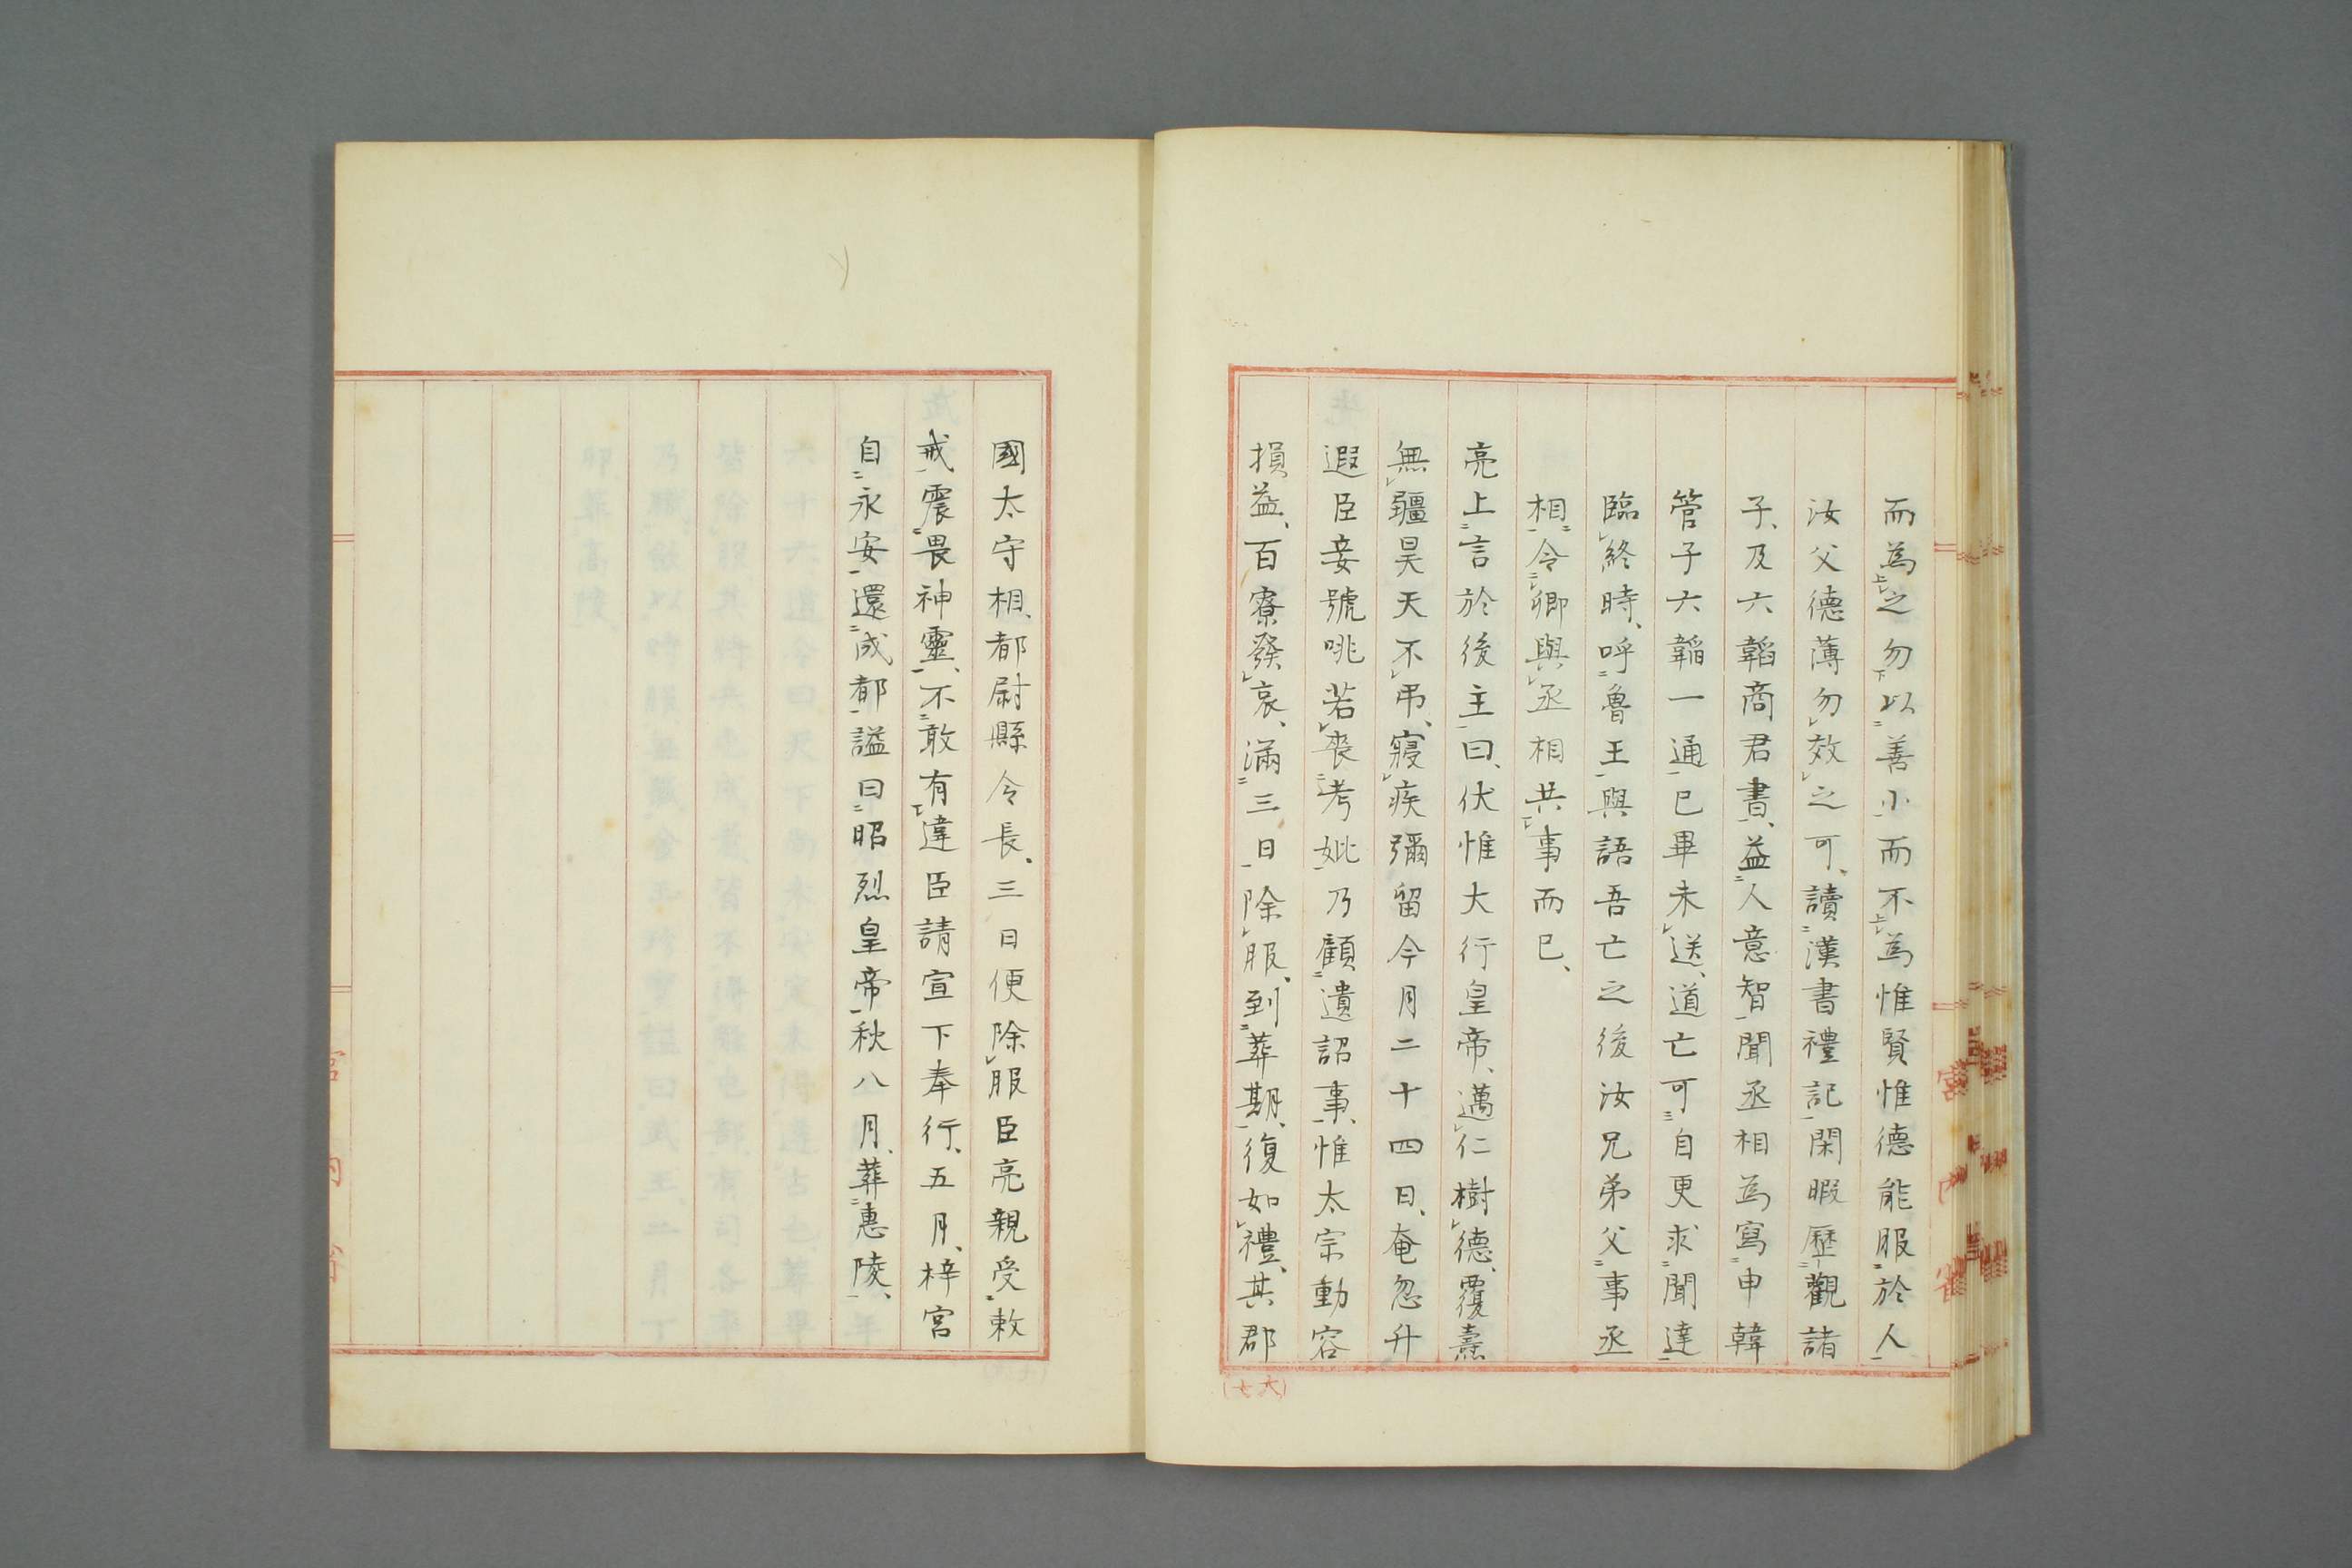 而為之勿以善小而不為惟賢惟德能服於人
汝父德薄勿效之可、讀漢書禮記閑暇歷觀諸
子、及六韜商君書、益人意智聞丞相為寫申韓
管子六韜一通已畢未送、道亡可自更求聞達
臨終時、呼魯王與語吾亡之後汝兄弟父事丞
相、令卿與丞相共事而已、
亮上言於後主曰、伏惟大行皇帝、邁仁樹德、覆燾
無疆昊天不弔、寢疾彌留今月二十四日、奄忽升
遐臣妾號咷若喪考妣乃顧遺詔事、惟太宗動容
損益、百寮發哀、滿三日除服、到葬期、復如禮、其郡
國太守相、都尉縣令長、三日便除服臣亮親受敕
戒震畏神靈、不敢有違臣請宣下奉行、五月、梓宮
自永安還成都謚曰昭烈皇帝秋八月、葬惠陵、
宮內省
(六七)